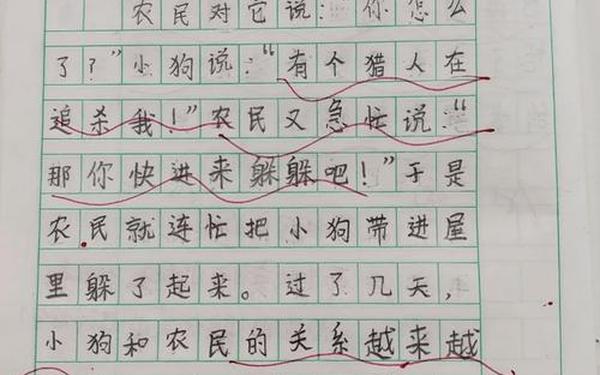 农民对它说：“你怎么
了？”小狗说：“有个猎人在
追杀我！”农民又急忙说：“
那你快进来躲躲吧！”于是
农民就连忙把小狗带进屋
里躲了起来。过了几天，
小狗和农民的关系越来越